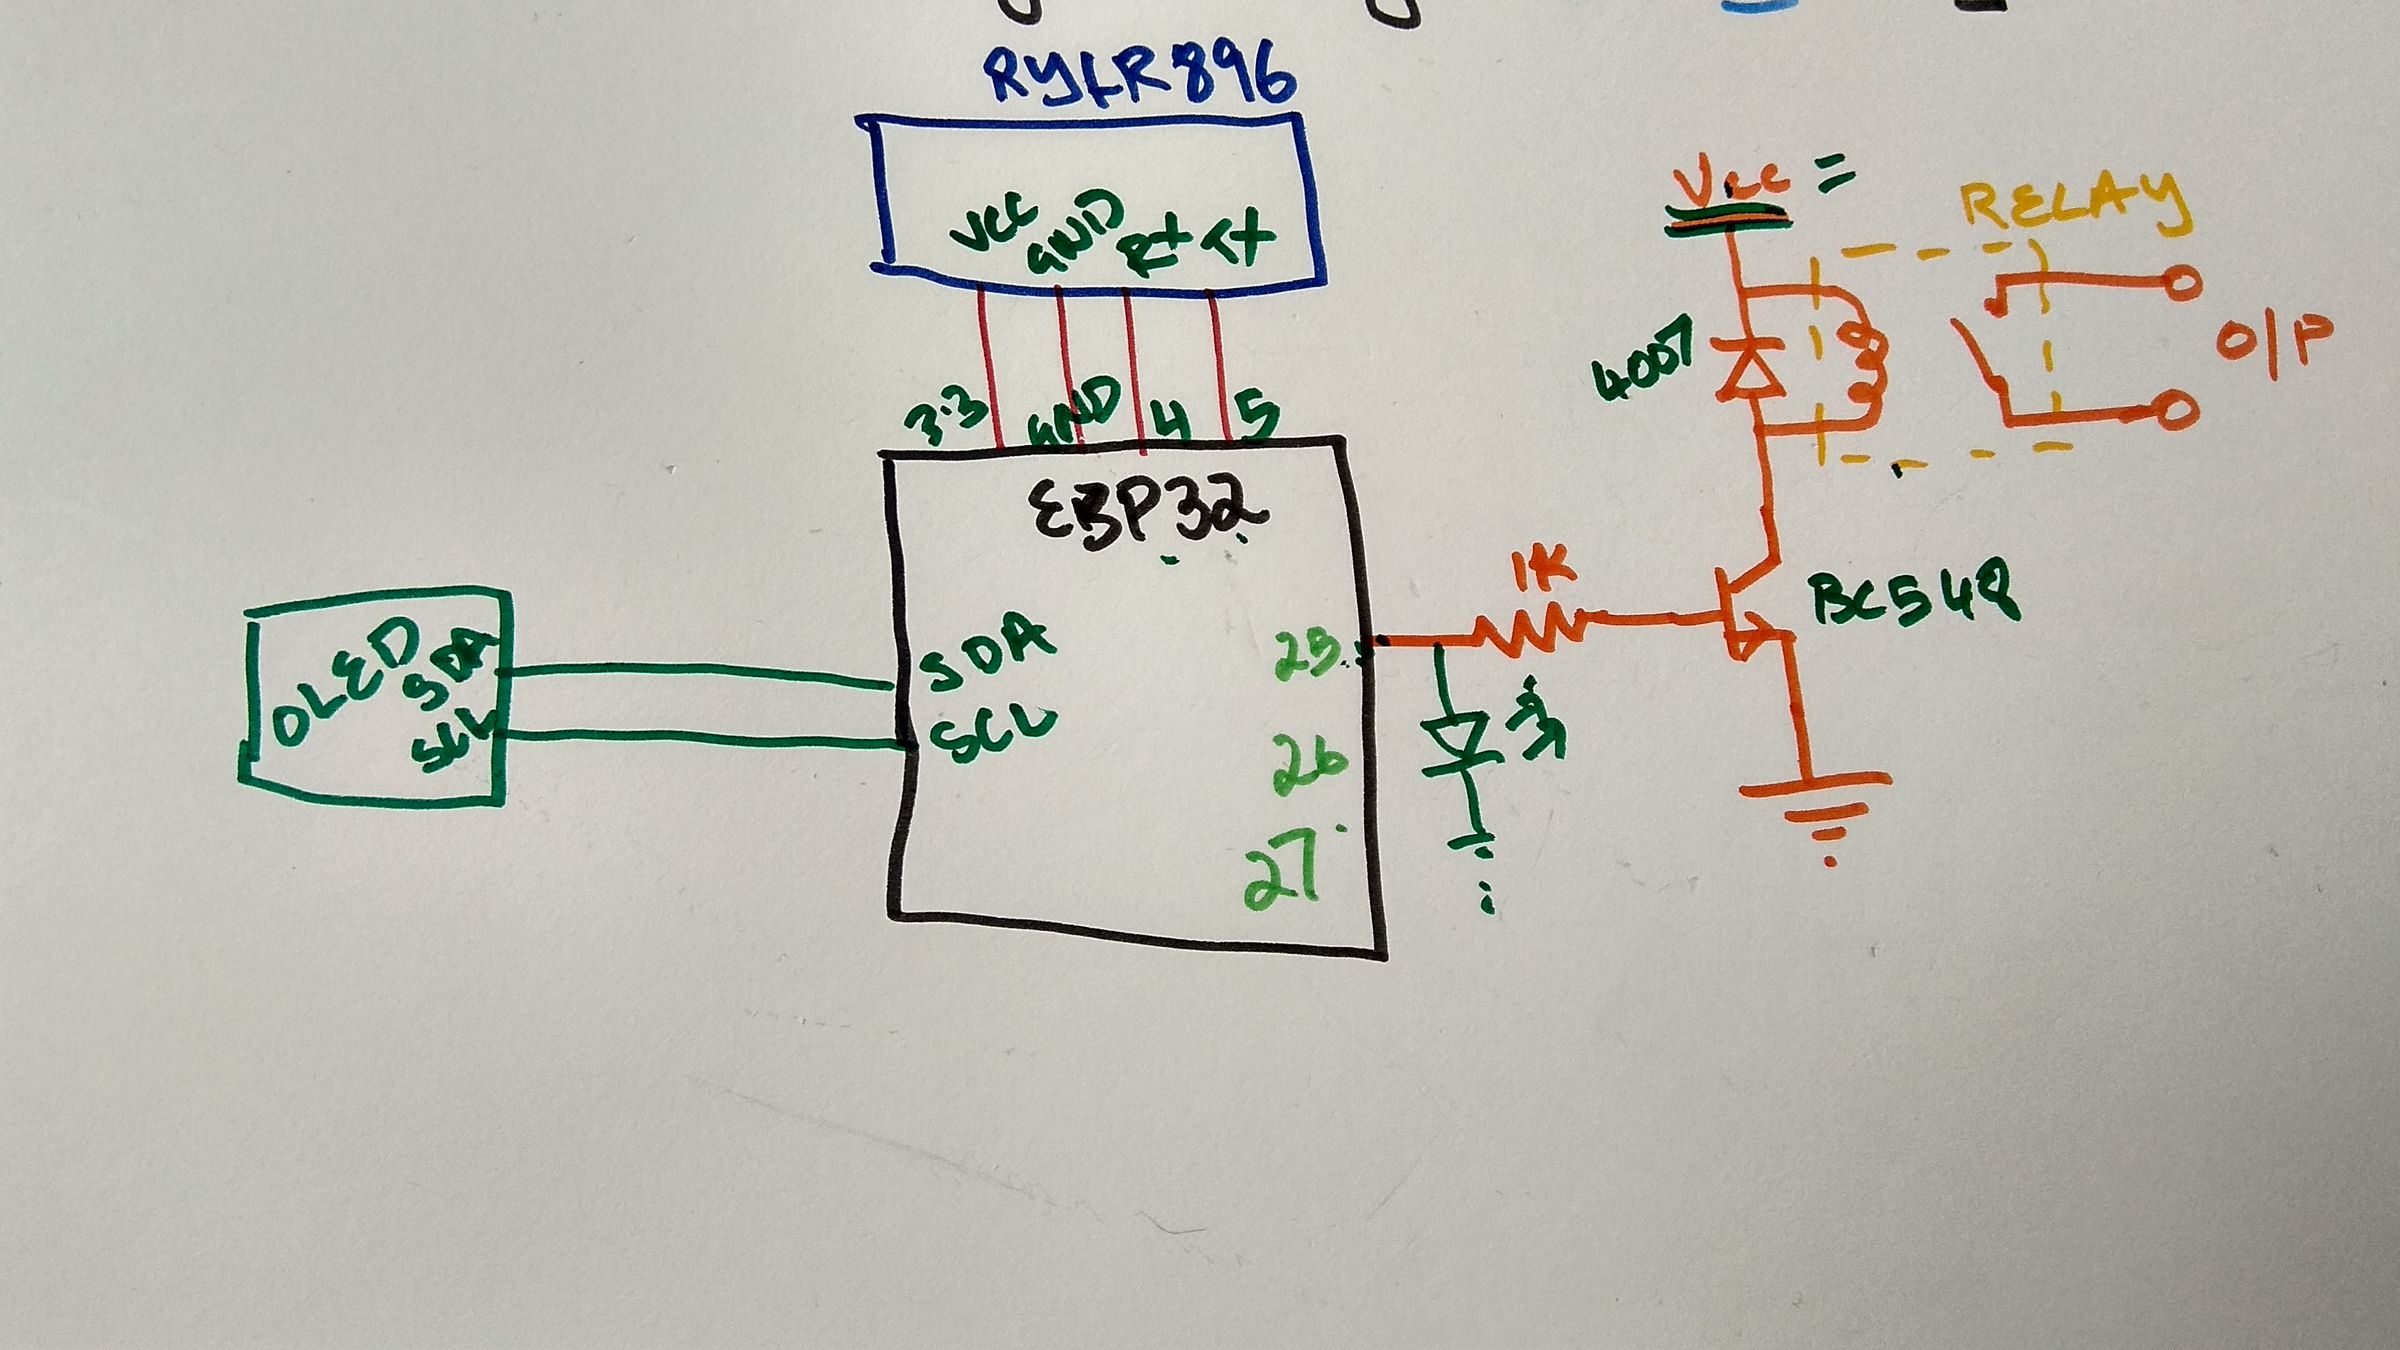 RYLR896
VCC GND RX TX
3.3 GND 4 5
ESP32
OLED SDA SCL
SDA
SCL
25
26
27
1K
BC548
4007
VCC =
RELAY
O/P